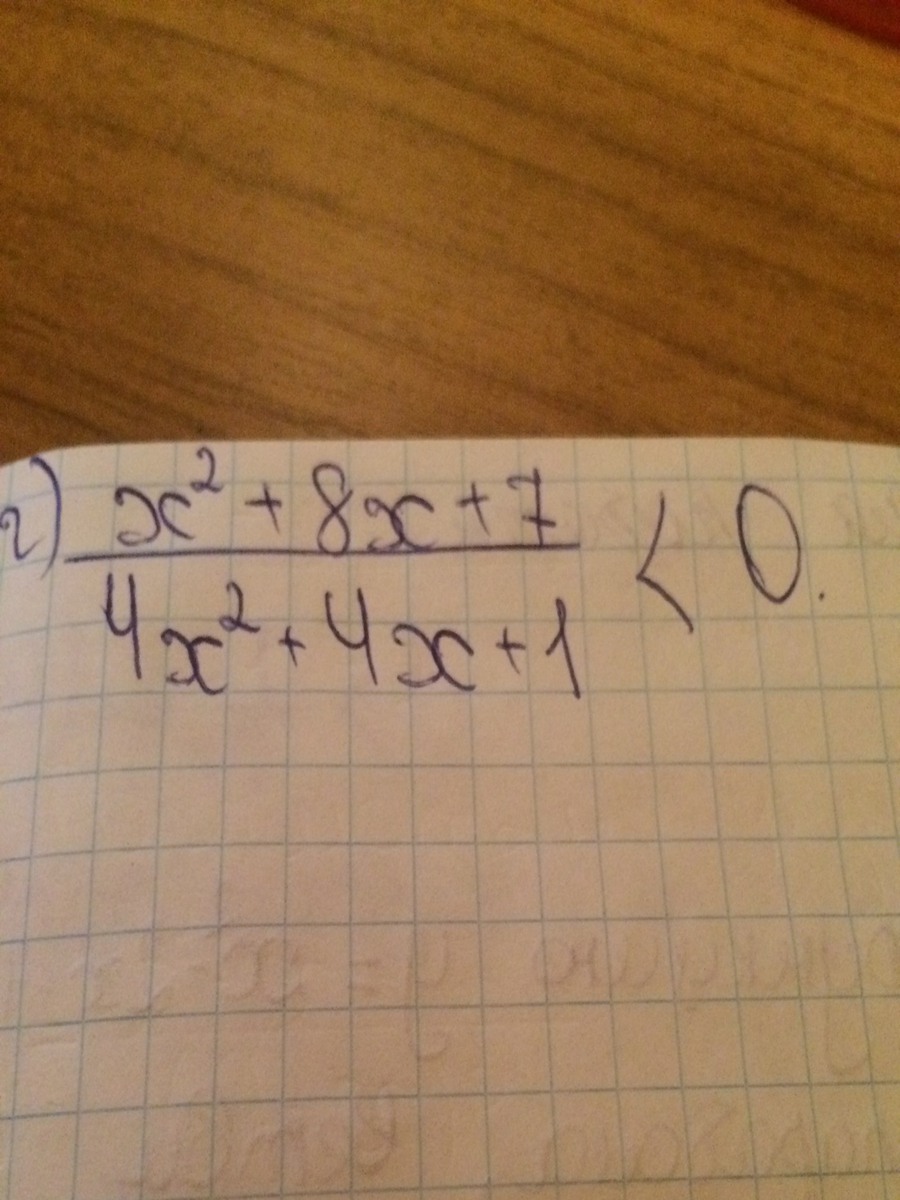 г) x² + 8x + 7
4x² + 4x + 1
< 0.